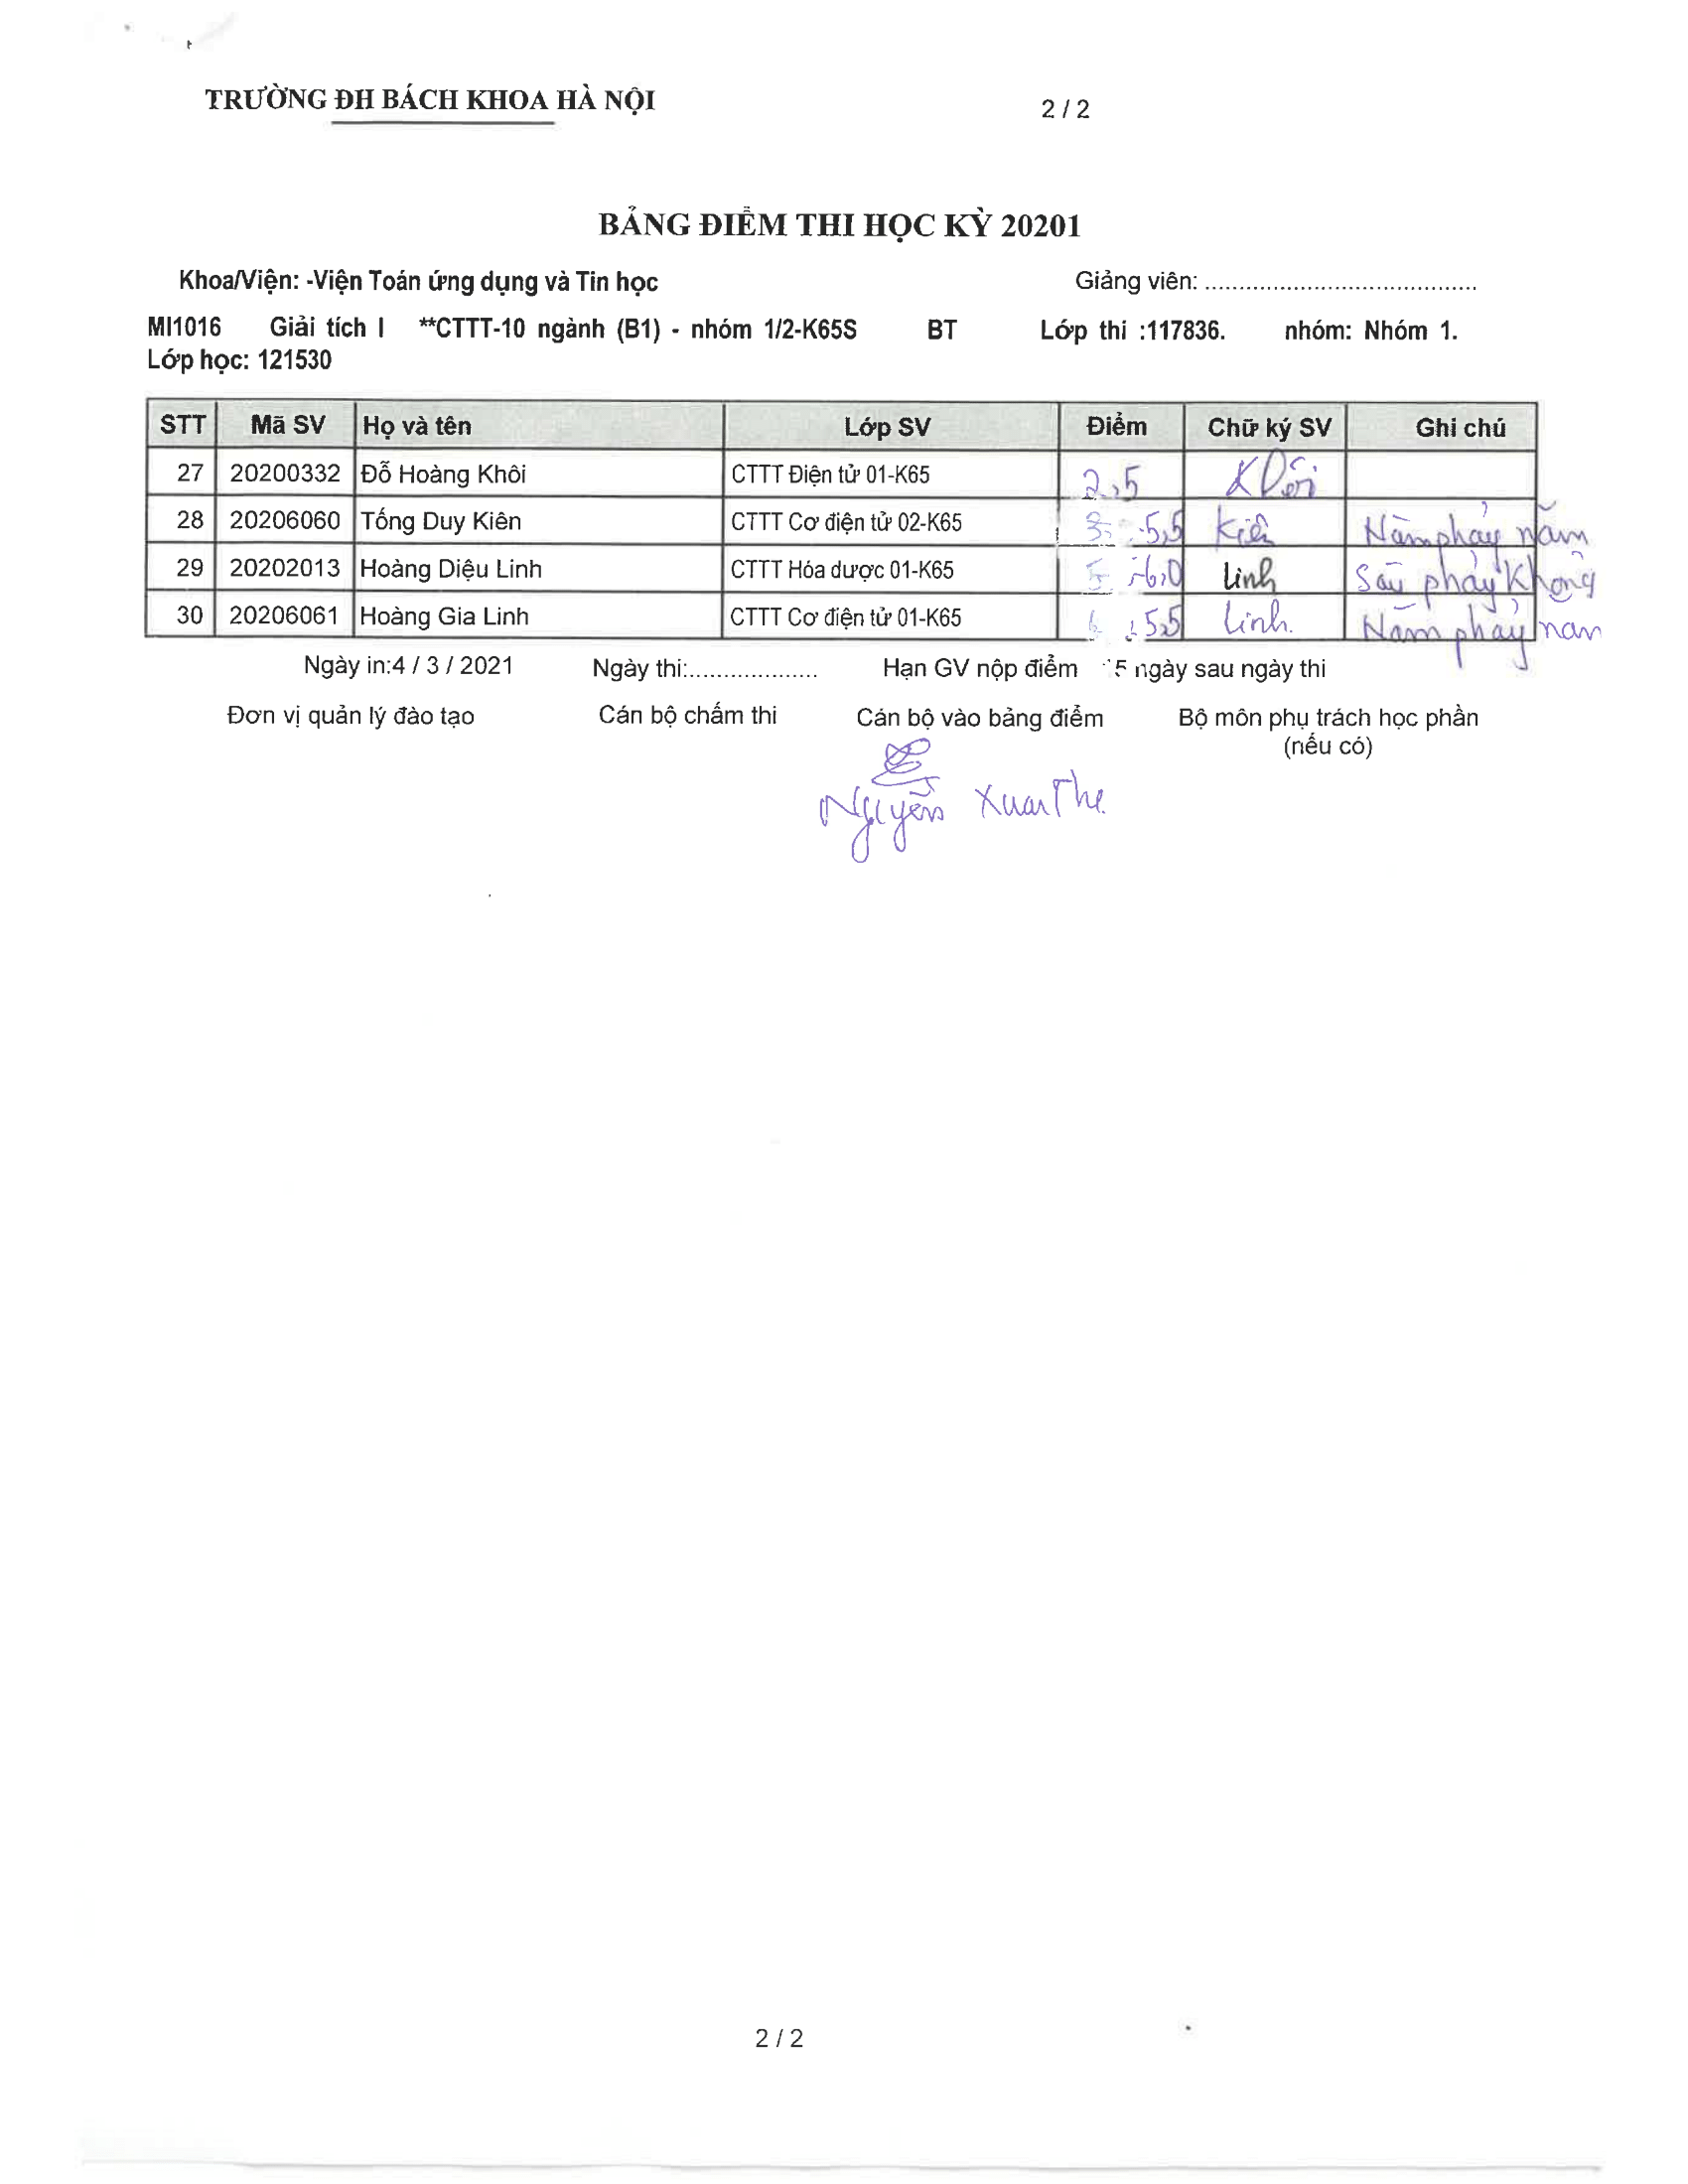 TRƯỜNG ĐH BÁCH KHOA HÀ NỘI
2 / 2
BẢNG ĐIỂM THI HỌC KỲ 20201
Khoa/Viện: -Viện Toán ứng dụng và Tin học Giảng viên: ........................................
MI1016 Giải tích I **CTTT-10 ngành (B1) - nhóm 1/2-K65S BT Lớp thi :117836. nhóm: Nhóm 1.
Lớp học: 121530
STT Mã SV Họ và tên Lớp SV Điểm Chữ ký SV Ghi chú
27 20200332 Đỗ Hoàng Khôi CTTT Điện tử 01-K65 2,5 Khôi
28 20206060 Tống Duy Kiên CTTT Cơ điện tử 02-K65 5,5 Kiên Năm phảy năm
29 20202013 Hoàng Diệu Linh CTTT Hóa dược 01-K65 6,0 Linh Sáu phảy không
30 20206061 Hoàng Gia Linh CTTT Cơ điện tử 01-K65 5,5 Linh. Năm phảy năm
Ngày in:4 / 3 / 2021 Ngày thi:................... Hạn GV nộp điểm 15 ngày sau ngày thi
Đơn vị quản lý đào tạo Cán bộ chấm thi Cán bộ vào bảng điểm Bộ môn phụ trách học phần
(nếu có)
Nguyễn Xuân The
2 / 2